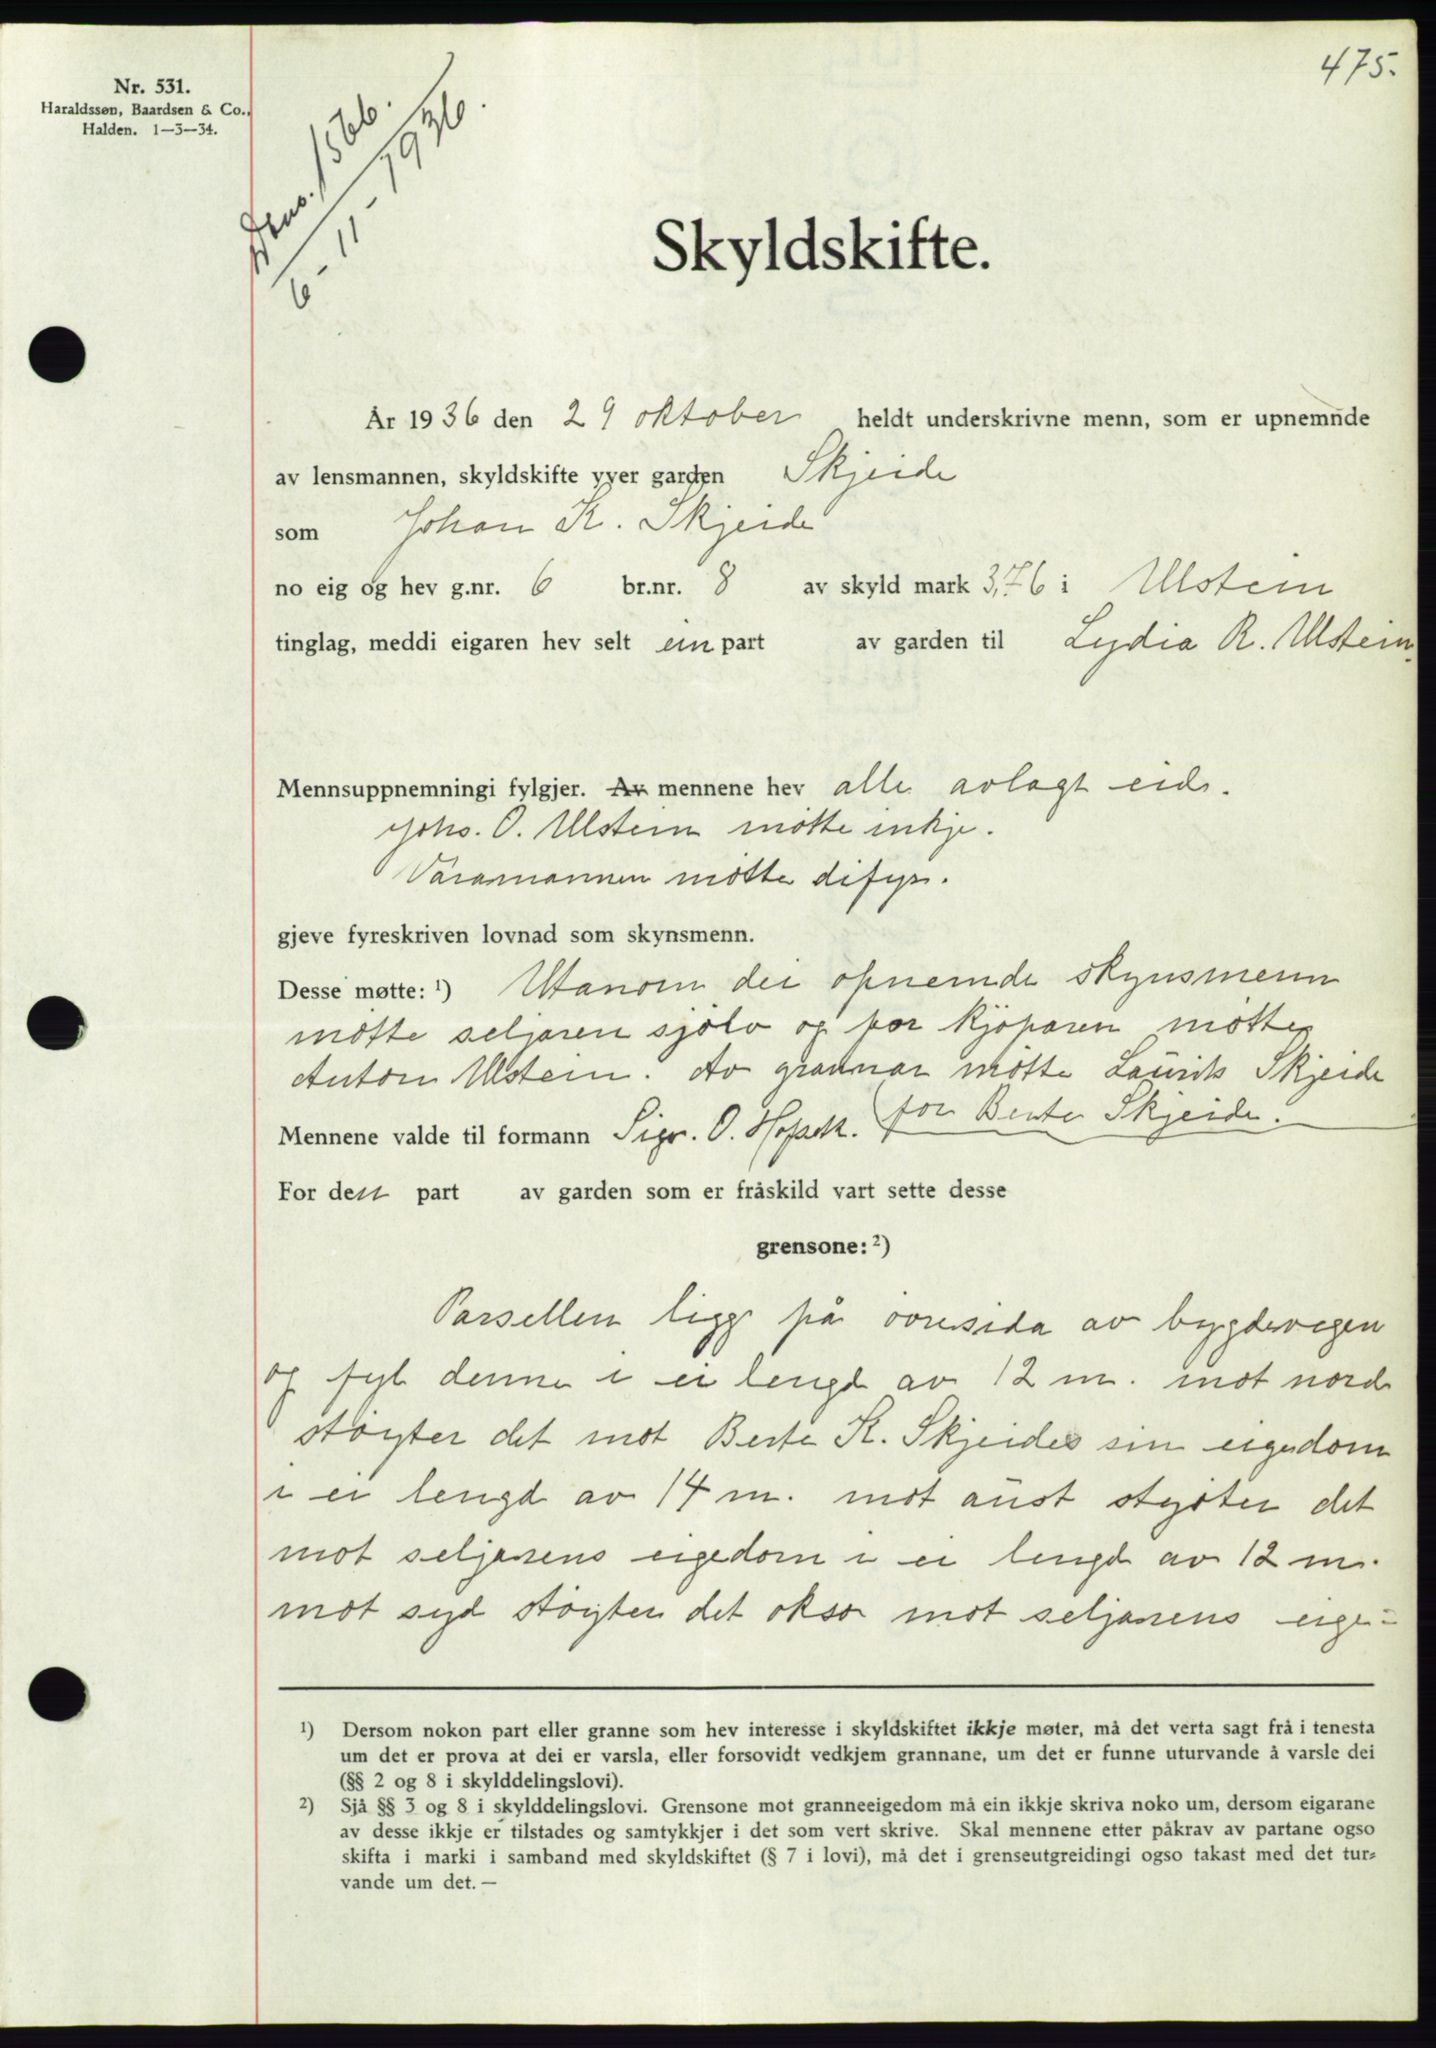 475.
Nr. 531.
Haraldssøn, Baardsen & Co.,
Halden. 1—3—34.
1566.
6-11-1936.
Skyldskifte.
År 1936 den 29 oktober heldt underskrivne menn, som er upnemnde
av lensmannen, skyldskifte yver garden Skjeide
som Johan K. Skjeide
no eig og hev g.nr. 6 br.nr. 8 av skyld mark 3,76 i Ulstein
tinglag, meddi eigaren hev selt ein part av garden til Lydia R. Ulstein.
Mennsuppnemningi fylgjer. Av mennene hev alle avlagt eid.
Johs. O. Ulstein møtte inkje.
Varamannen møtte difyr.
gjeve fyreskriven lovnad som skynsmenn.
Desse møtte: ¹) Utanom dei opnemde skynsmenn
møtte seljaren sjølv og for kjøparen møtte
Anton Ulstein. Av grannar møtte Laurits Skjeide
for Berte Skjeide.
Mennene valde til formann Sigv. O. Hofseth.
For den part av garden som er fråskild vart sette desse
grensone: ²)
Parsellen ligg på øvresida av bygdevegen
og fyl denne i ei lengd av 12 m. mot nord
støyter det mot Berte K. Skjeides sin eigedom
i ei lengd av 14 m. mot aust støyter det
mot seljarens eigedom i ei lengd av 12 m.
mot syd støyter det okso mot seljarens eige-
¹) Dersom nokon part eller granne som hev interesse i skyldskiftet ikkje møter, må det verta sagt frå i tenesta
um det er prova at dei er varsla, eller forsovidt vedkjem grannane, um det er funne uturvande å varsle dei
(§§ 2 og 8 i skylddelingslovi).
²) Sjå §§ 3 og 8 i skylddelingslovi. Grensone mot granneeigedom må ein ikkje skriva noko um, dersom eigarane
av desse ikkje er tilstades og samtykkjer i det som vert skrive. Skal mennene etter påkrav av partane ogso
skifta i marki i samband med skyldskiftet (§ 7 i lovi), må det i grenseutgreidingi ogso takast med det tur-
vande um det. —